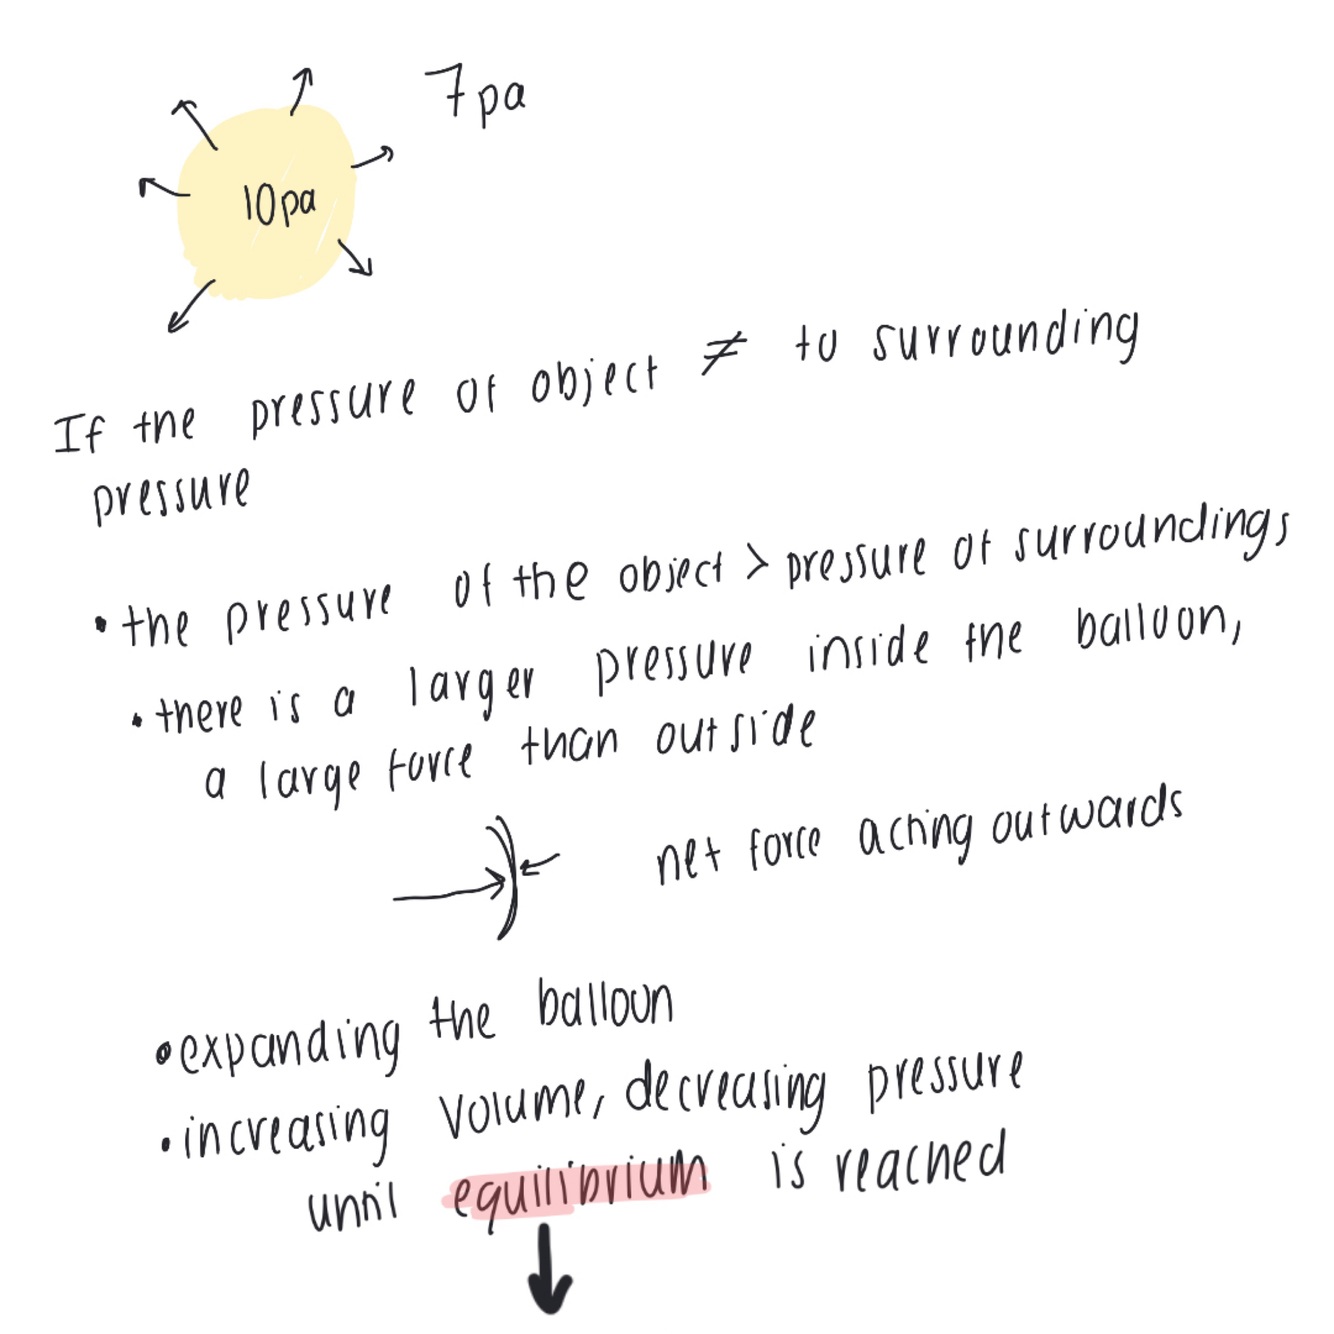 7pa
10pa
If the pressure of object ≠ to surrounding
pressure
• the pressure of the object > pressure of surroundings
• there is a larger pressure inside the balloon,
a large force than outside
net force acting outwards
• expanding the balloon
• increasing volume, decreasing pressure
until equilibrium is reached